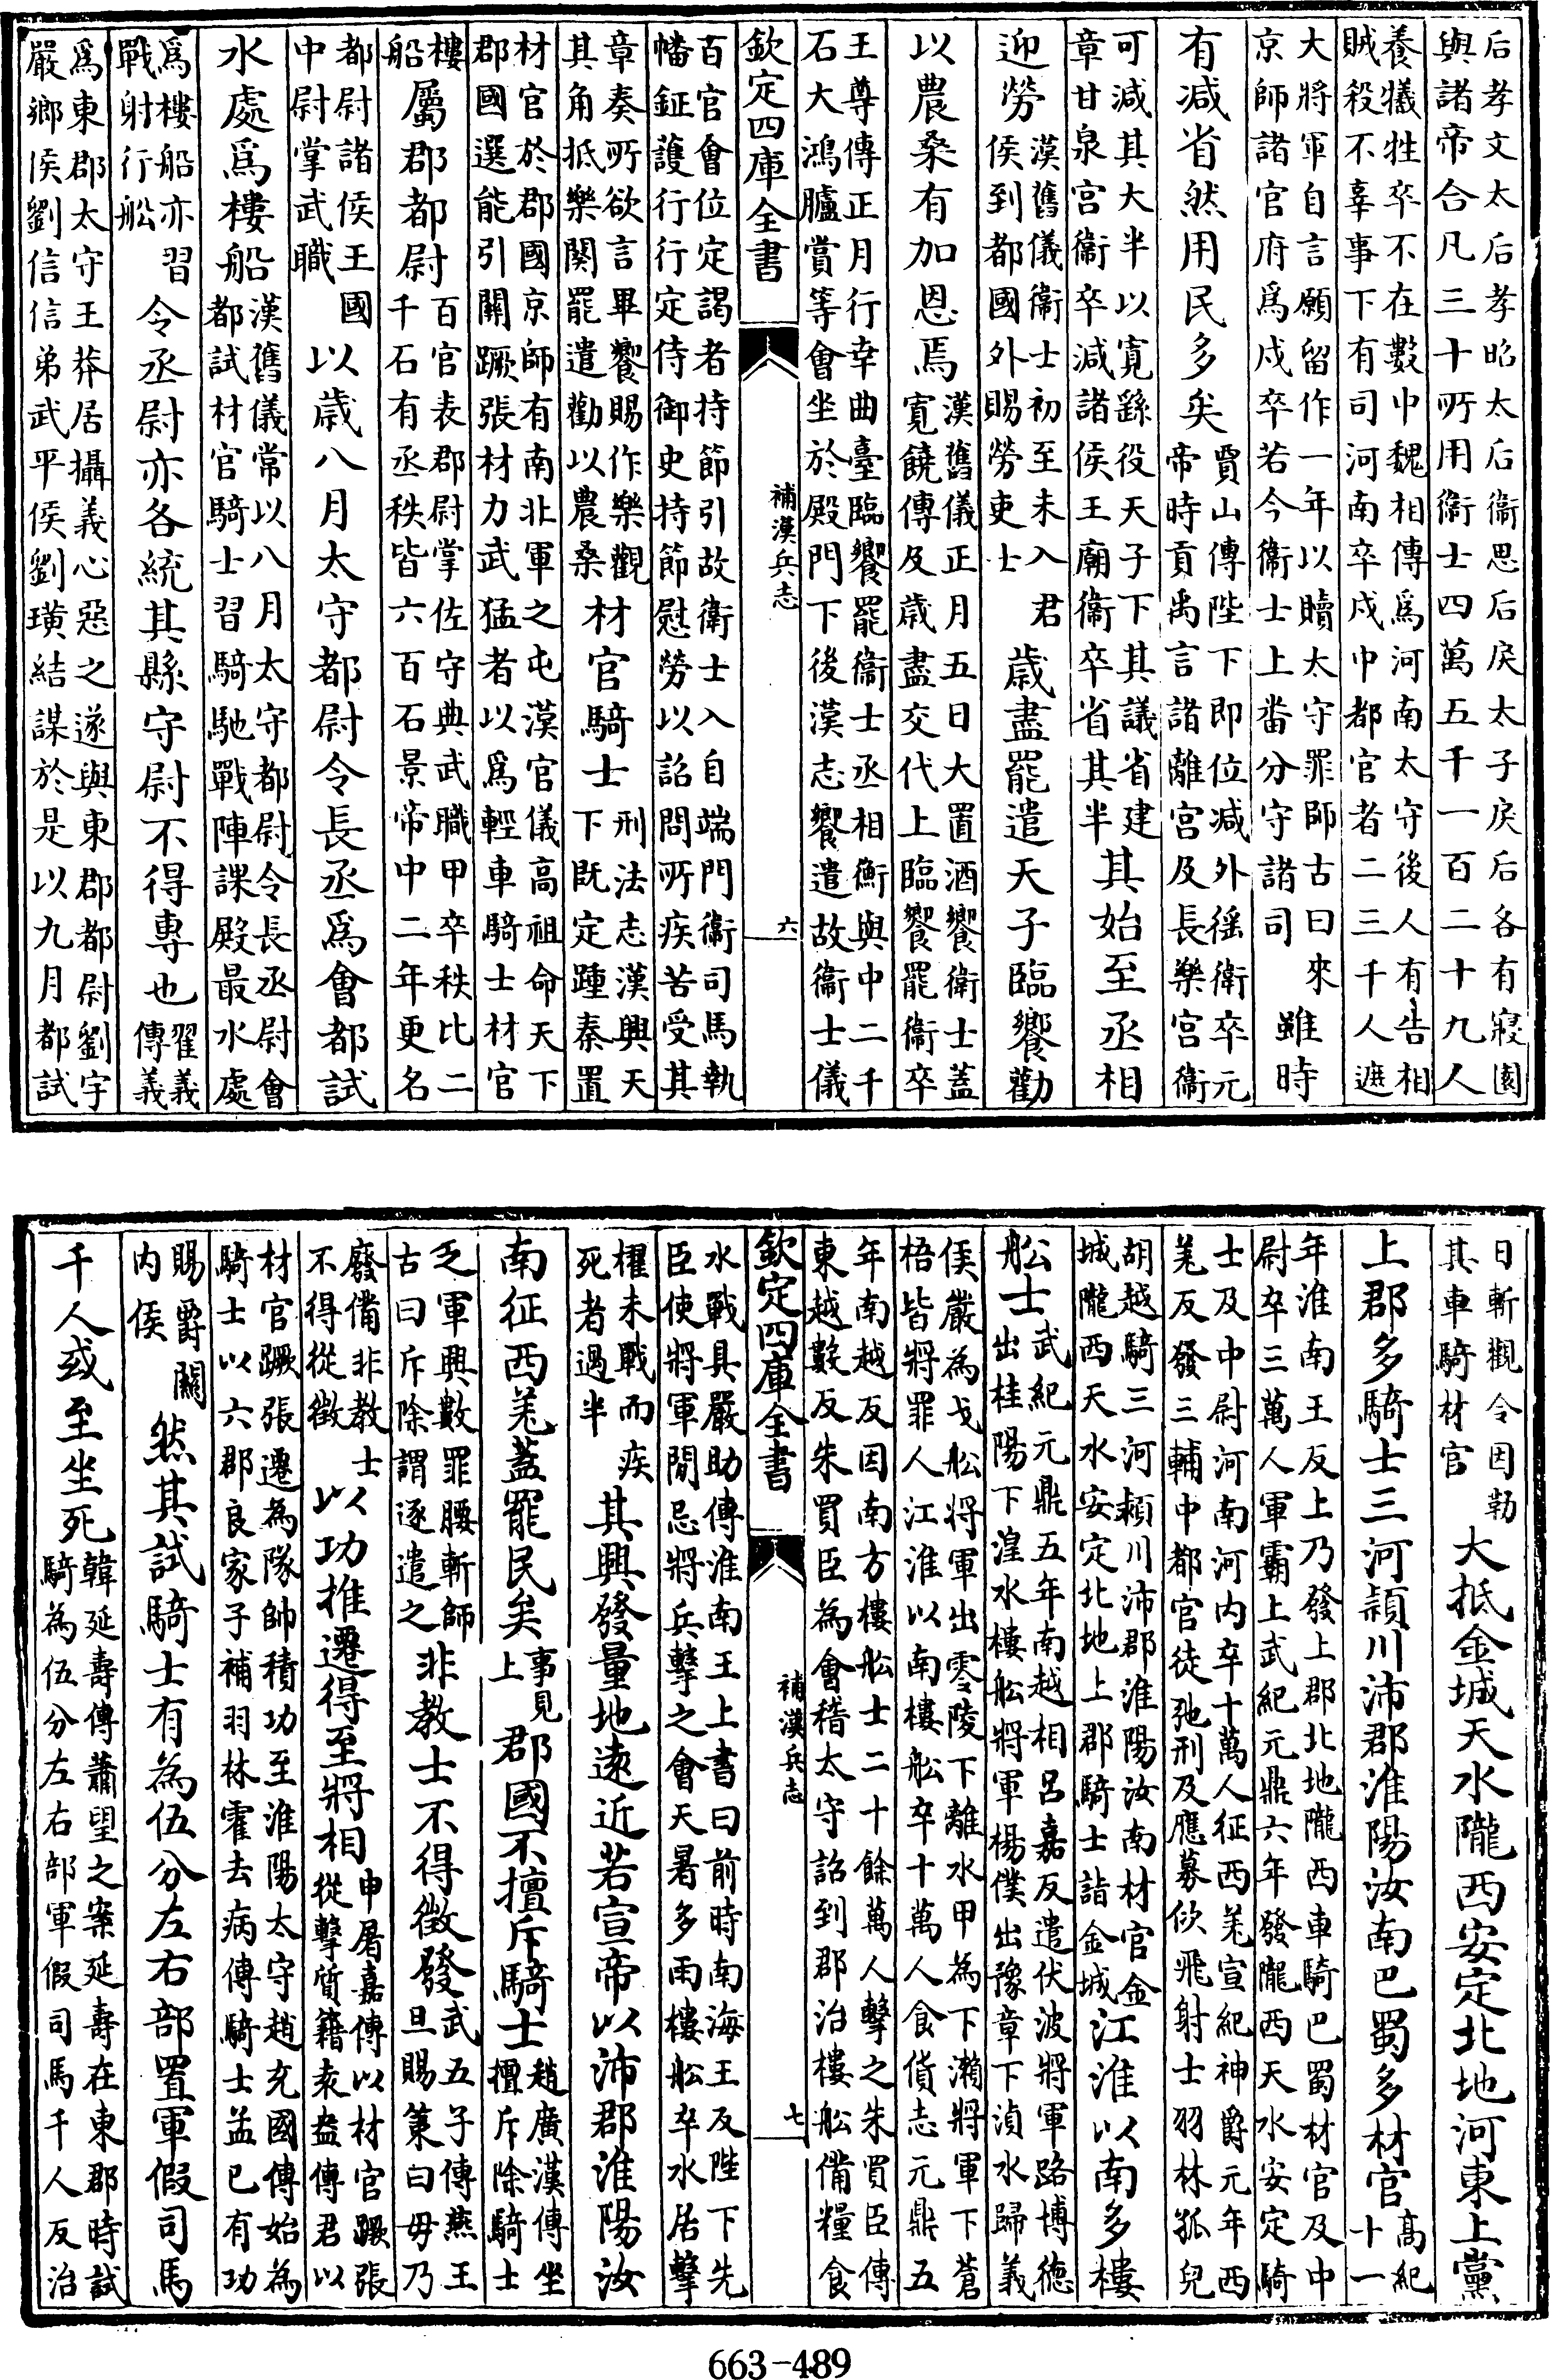 后孝文太后孝昭太后衞思后戾太子戾后各有寢園
與諸帝合凡三十所用衞士四萬五千一百二十九人
養犧牲卒不在數中魏相傳爲河南太守後人有告相
賊殺不辜事下有司河南卒戍中都官者二三千人遮
大將軍自言願留作一年以贖太守罪師古曰來
京師諸官府爲戍卒若今衞士上畨分守諸司
雖時
有减省然用民多矣
賈山傳陛下即位减外徭衛卒元
帝時貢禹言諸離宮及長樂宮衞
可減其大半以寛繇役天子下其議省建
章甘泉宮衞卒減諸侯王廟衞卒省其半
其始至丞相
迎勞
漢舊儀衞士初至未入君
侯到都國外賜勞吏士
歲盡罷遣天子臨饗勸
以農桑有加恩焉
漢舊儀正月五日大置酒饗衛士蓋
寛饒傳及歲盡交代上臨饗罷衞卒
王尊傳正月行幸曲臺臨饗罷衞士丞相衡與中二千
石大鴻臚賞等會坐於殿門下後漢志饗遣故衞士儀
欽定四庫全書
補漢兵志
六
百官會位定謁者持節引故衛士入自端門衞司馬執
幡鉦護行行定侍御史持節慰勞以詔問所疾苦受其
章奏所欲言畢饗賜作樂觀
其角抵樂闋罷遣勸以農桑
材官騎士
刑法志漢興天
下既定踵秦置
材官於郡國京師有南北軍之屯漢官儀高祖命天下
郡國選能引關蹶張材力武猛者以爲輕車騎士材官
樓
船
屬郡都尉
百官表郡尉掌佐守典武職甲卒秩比二
千石有丞秩皆六百石景帝中二年更名
都尉諸侯王國
中尉掌武職
以歲八月太守都尉令長丞爲會都試
水處爲樓船
漢舊儀常以八月太守都尉令長丞尉會
都試材官騎士習騎馳戰陣課殿最水處
爲樓船亦習
戰射行船
令丞尉亦各統其縣守尉不得專也
翟義
傳義
爲東郡太守王莽居攝義心惡之遂與東郡都尉劉宇
嚴鄉侯劉信信弟武平侯劉璜結謀於是以九月都試
日斬觀令因勒
其車騎材官
大抵金城天水隴西安定北地河東上黨
上郡多騎士三河潁川沛郡淮陽汝南巴蜀多材官
高紀
十一
年淮南王反上乃發上郡北地隴西車騎巴蜀材官及中
尉卒三萬人軍霸上武紀元鼎六年發隴西天水安定騎
士及中尉河南河内卒十萬人征西羌宣紀神爵元年西
羌反發三輔中都官徒弛刑及應募佽飛射士羽林孤兒
胡越騎三河潁川沛郡淮陽汝南材官金
城隴西天水安定北地上郡騎士詣金城
江淮以南多樓
舩士
武紀元鼎五年南越相吕嘉反遣伏波將軍路博德
出桂陽下湟水樓舩將軍楊僕出豫章下湞水歸義
侯嚴為戈舩將軍出零陵下離水甲為下瀨將軍下蒼
梧皆將罪人江淮以南樓舩卒十萬人食貨志元鼎五
年南越反因南方樓舩士二十餘萬人擊之朱買臣傳
東越數反朱買臣為會稽太守詔到郡治樓舩備糧食
欽定四庫全書
補漢兵志
七
水戰具嚴助傳淮南王上書曰前時南海王反陛下先
臣使將軍間忌將兵擊之會天暑多雨樓舩卒水居擊
櫂未戰而疾
死者過半
其興發量地遠近若宣帝以沛郡淮陽汝
南征西羌蓋罷民矣
事見
上
郡國不擅斥騎士
趙廣漢傳坐
擅斥除騎士
乏軍興數罪腰斬師
古曰斥除謂逐遣之
非教士不得徴發
武五子傳燕王
旦賜策曰毋乃
廢備非教士
不得從徴
以功推遷得至將相
申屠嘉傳以材官蹶張
從擊項籍袁盎傳君以
材官蹶張遷為隊帥積功至淮陽太守趙充國傳始為
騎士以六郡良家子補羽林霍去病傳騎士孟已有功
賜爵關
内侯
然其試騎士有為伍分左右部置軍假司馬
千人或至坐死
韓延壽傳蕭望之案延壽在東郡時試
騎為伍分左右部軍假司馬千人反治
663-489